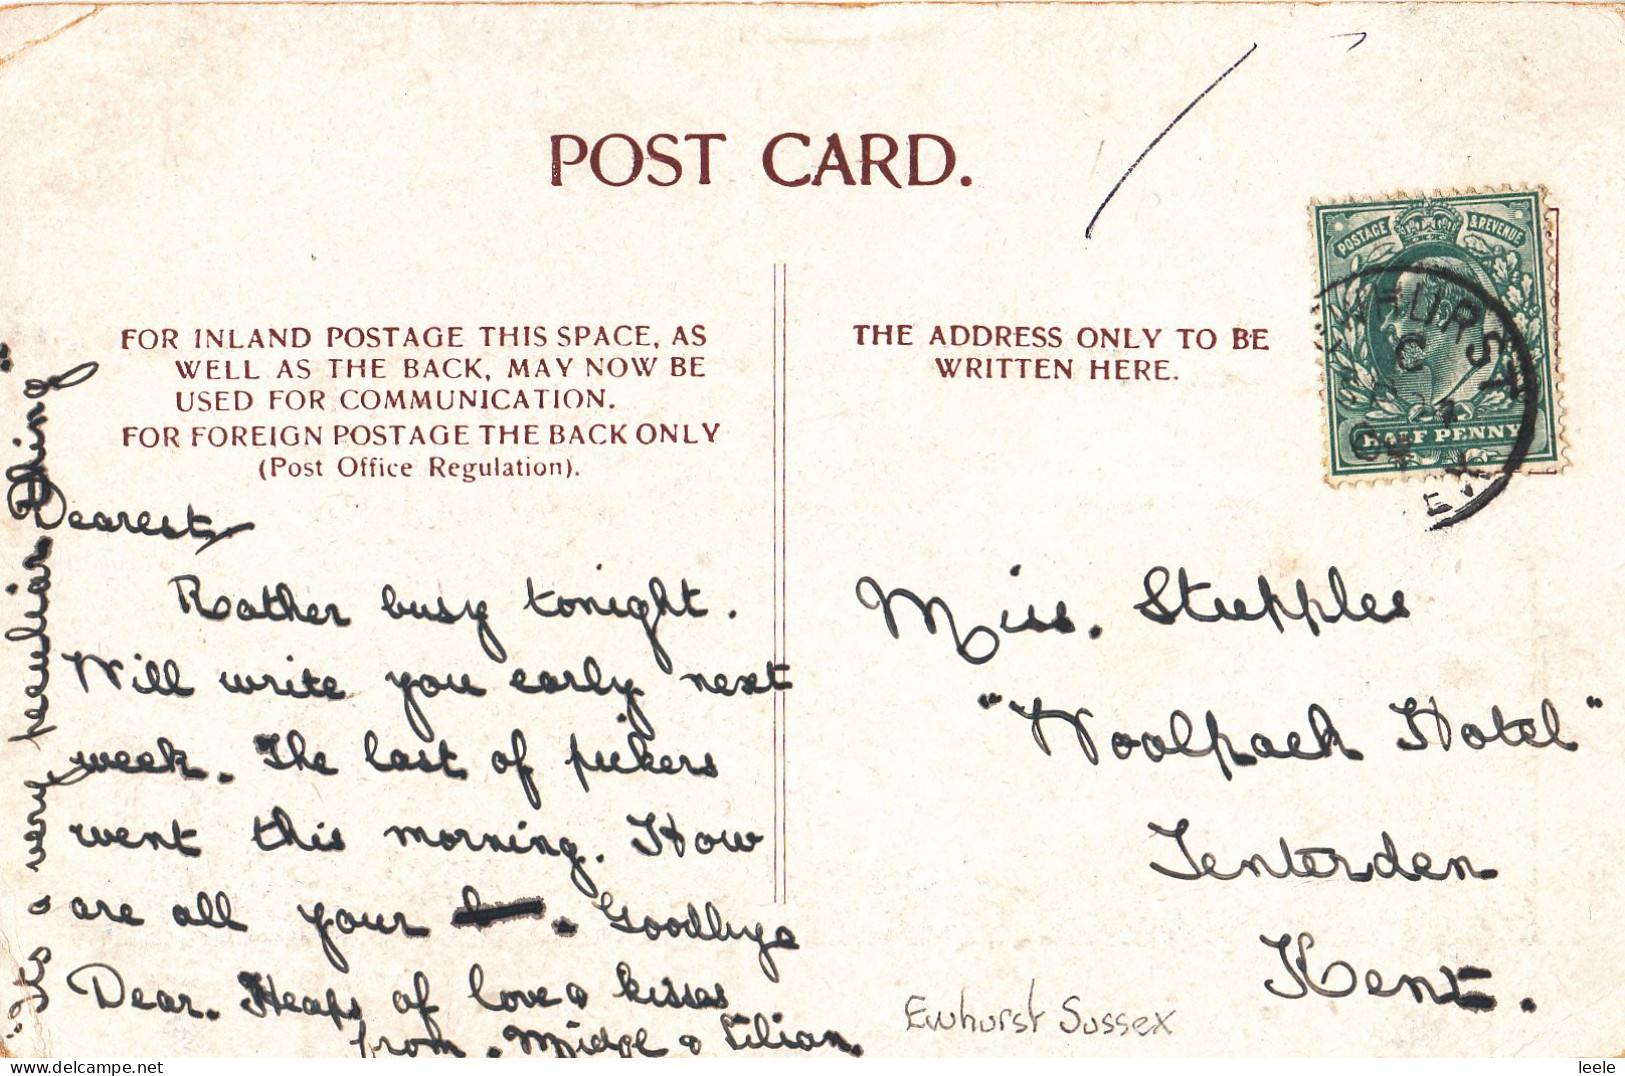 POST CARD.
FOR INLAND POSTAGE THIS SPACE, AS
WELL AS THE BACK, MAY NOW BE
USED FOR COMMUNICATION.
FOR FOREIGN POSTAGE THE BACK ONLY
(Post Office Regulation).
THE ADDRESS ONLY TO BE
WRITTEN HERE.
POSTAGE & REVENUE
HALF PENNY
Dearest
Rather busy tonight.
Will write you early next
week. The last of pickers
went this morning. How
are all your . Goodbye
Dear. Heaps of love & kisses
from. Midge & Lilian.
"Its a very peculiar thing"
Miss. Stupples
"Woolpack Hotel"
Tenterden
Kent.
Ewhurst Sussex
delcampe.net
leele